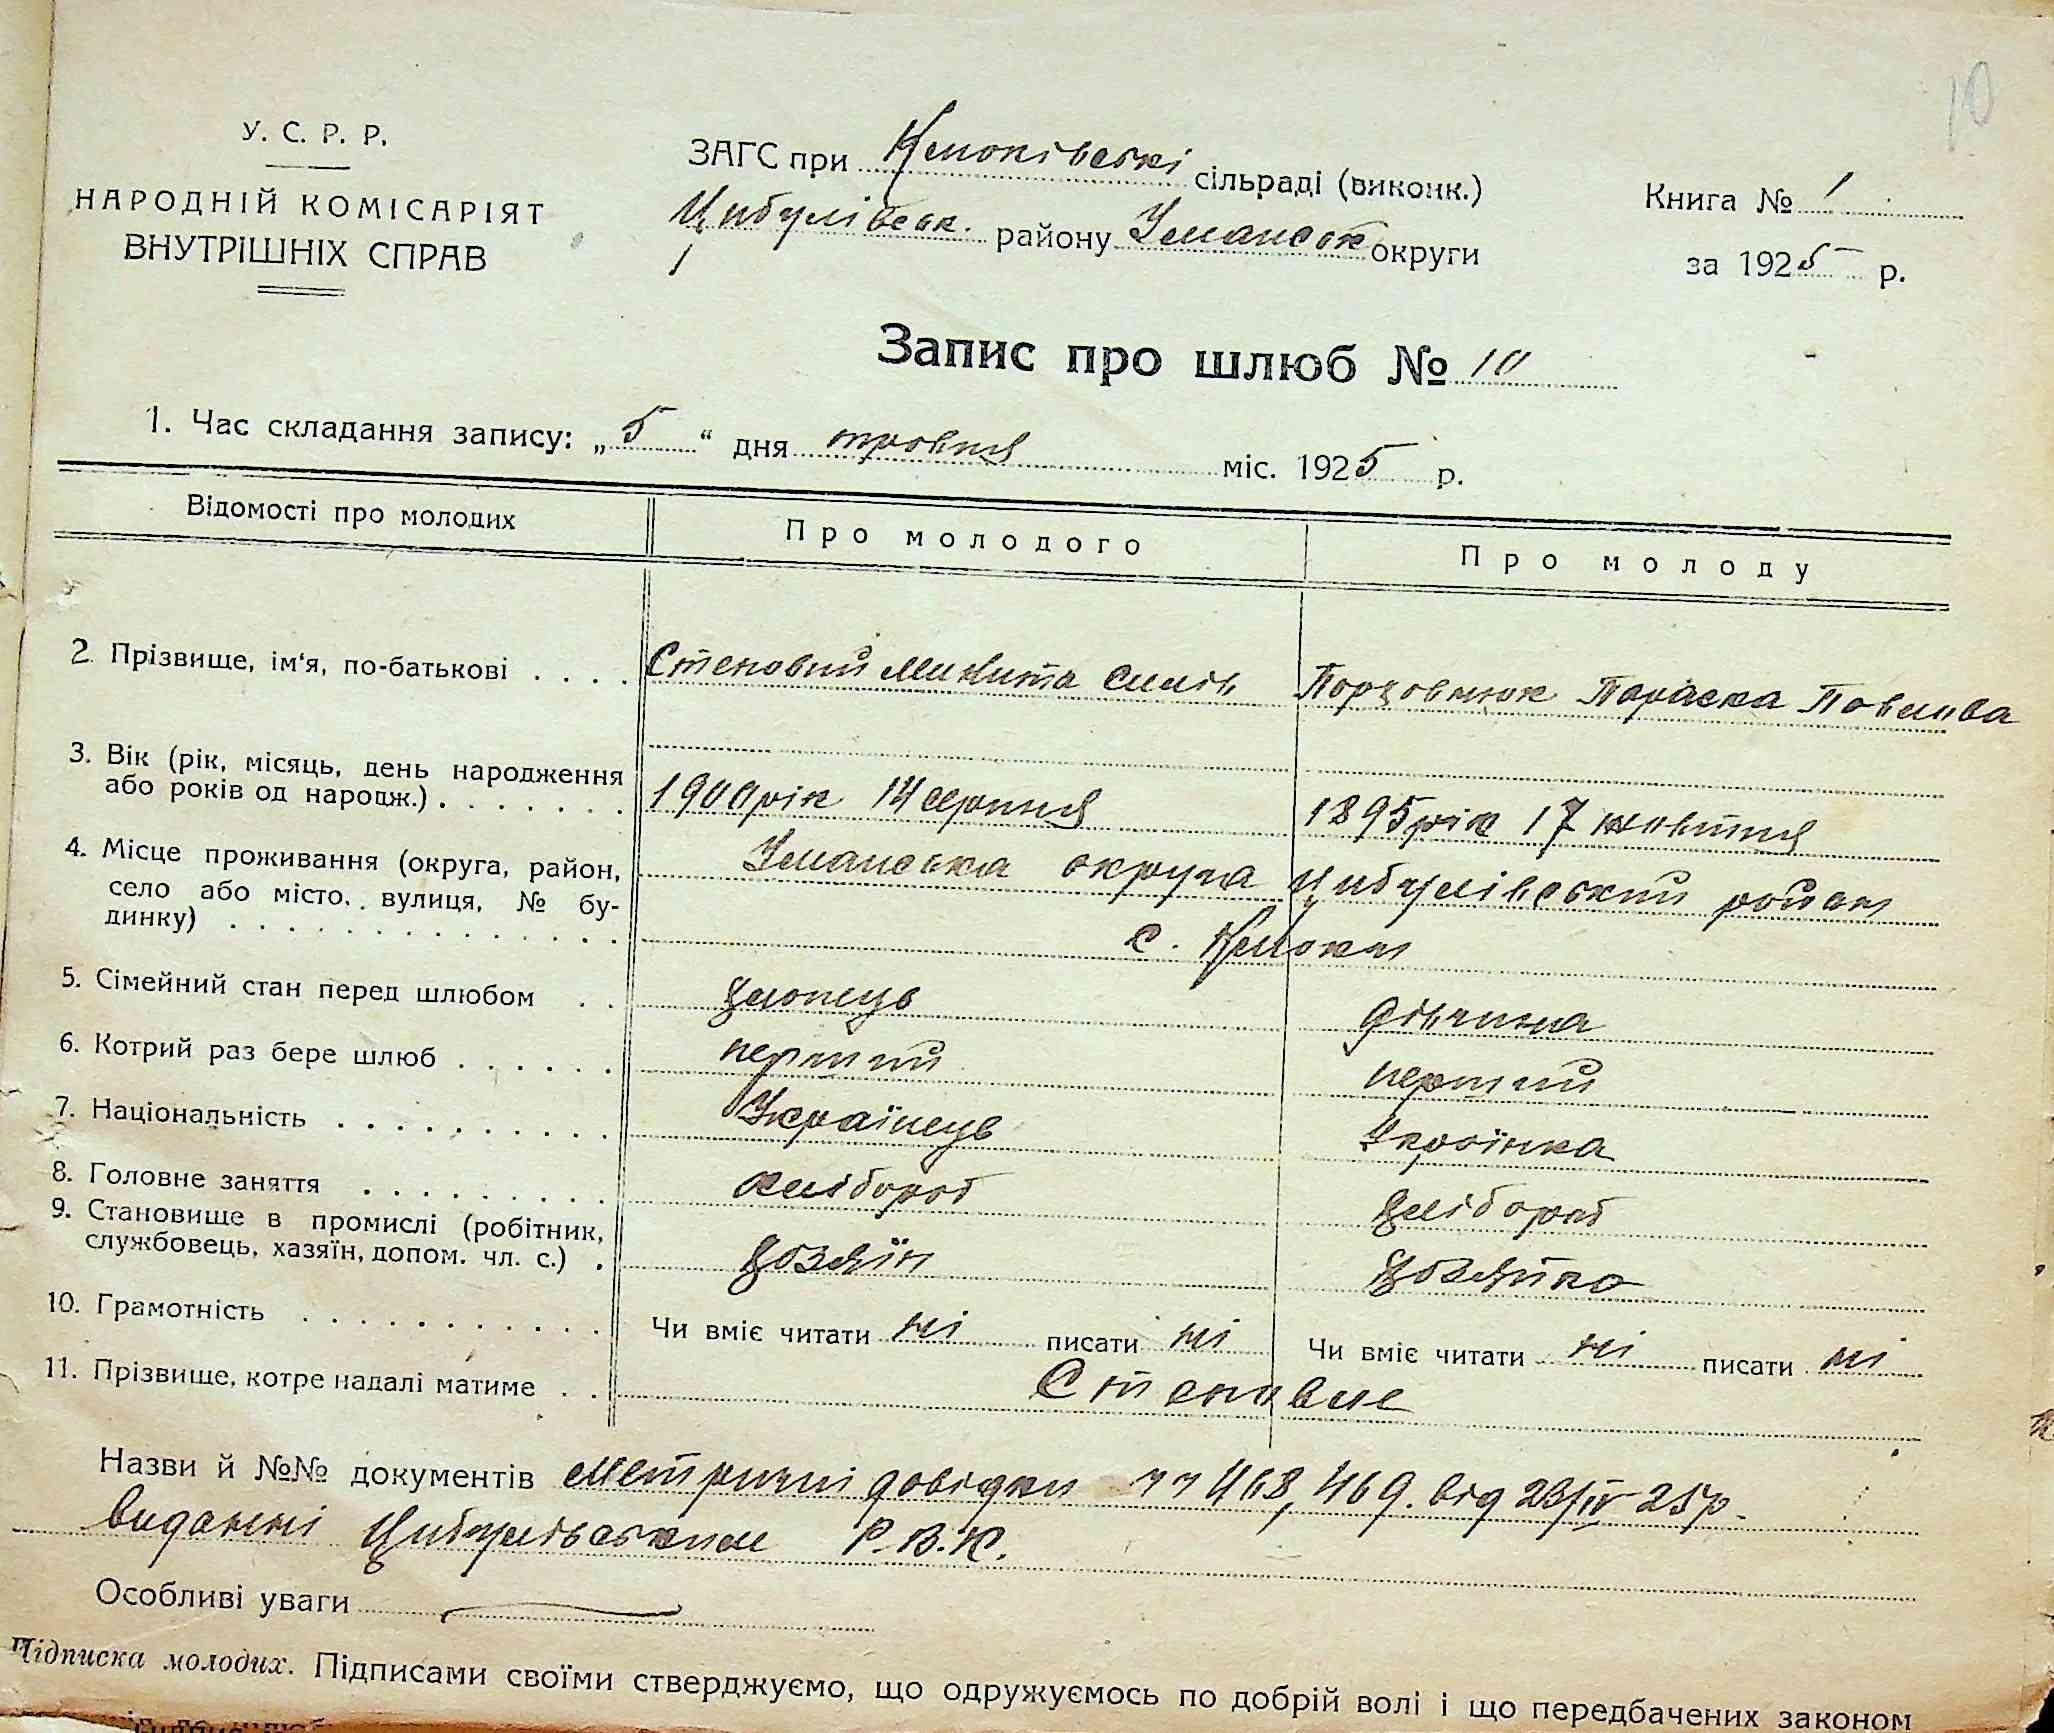 10
У. С. Р. Р.
НАРОДНІЙ КОМІСАРІЯТ
ВНУТРІШНІХ СПРАВ
ЗАГС при Кмоківські сільраді (виконк.)
Цибулівськ. району Уманськ округи
Книга № 1
за 1925 р.
Запис про шлюб № 10
1. Час складання запису: „5“ дня травня міс. 1925 р.
Відомості про молодих
Про молодого
Про молоду
2. Прізвище, ім‘я, по-батькові . . . . Степовий Микита Силів Параска Павлова
3. Вік (рік, місяць, день народження
або років од народж.) . . . . . . . 1900 рік 14 серпня 1895 рік 17 жовтня
4. Місце проживання (округа, район, Уманська округа Цибулівський район
село або місто, вулиця, № бу-
динку) . . . . . . . . . . . . . . с.
5. Сімейний стан перед шлюбом . . хлопець дівчина
6. Котрий раз бере шлюб . . . . . . перший перший
7. Національність . . . . . . . . . . Українець Українка
8. Головне заняття . . . . . . . . . хлібороб хлібороб
9. Становище в промислі (робітник,
службовець, хазяїн, допом. чл. с.) . хозяїн хозяйка
10. Грамотність . . . . . . . . . . . . Чи вміє читати ні писати ні Чи вміє читати ні писати ні
11. Прізвище, котре надалі матиме . .
Назви й №№ документів Метричні довідки чч 468, 469. від 23/IV 25р.
виданні Цибулівським Р.В.К.
Особливі уваги
Підписка молодих. Підписами своїми стверджуємо, що одружуємось по добрій волі і що передбачених законом